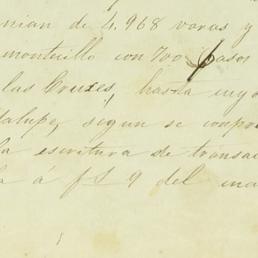 nian de 4.968 varas y
montecillo con 700 pasos
las Cruzes, hasta
dalupe, segun se
la escritura de transac
la á fs 9 del